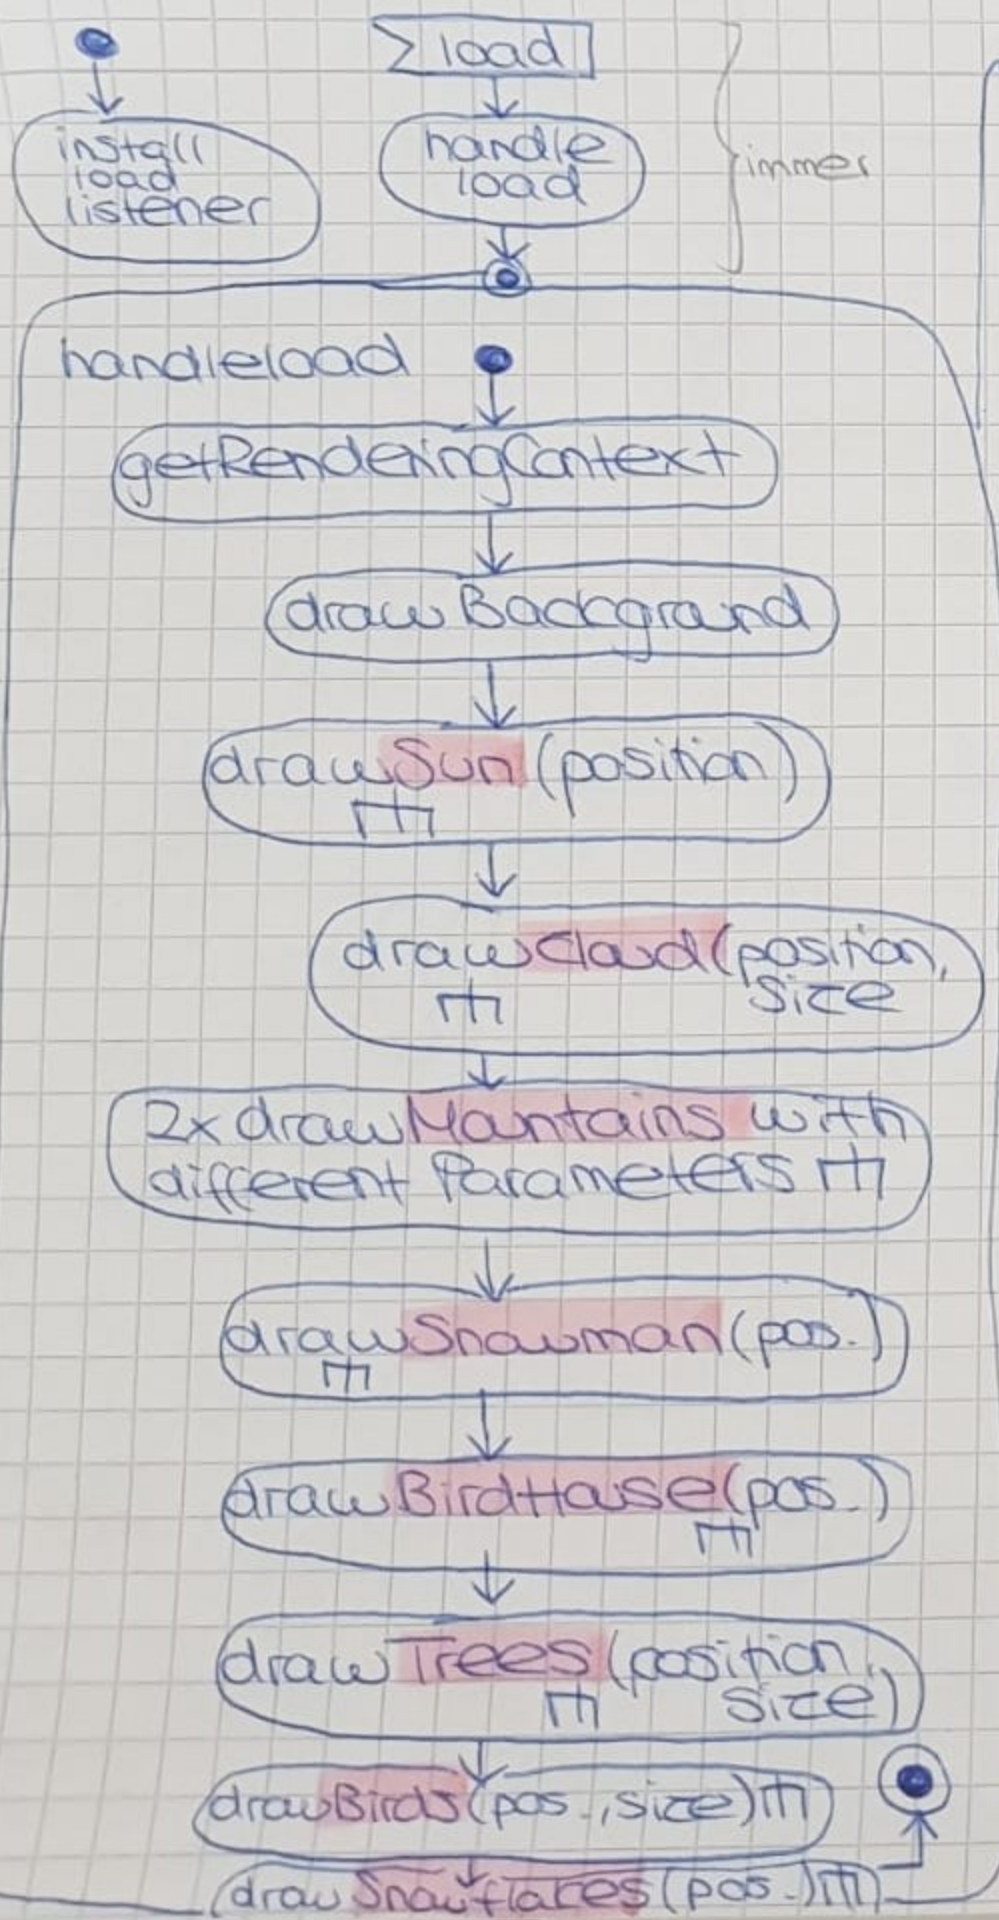 load
install
load
listener
handle
load
immer
handleload
getRenderingContext
draw Background
drawSun (position)
drawCloud (position,
size
2x drawMountains with
different Parameters
drawSnowman (pos.)
drawBirdHouse (pos.)
draw Trees (position,
size)
drawBirds (pos., size)
draw Snowflakes (pos.)